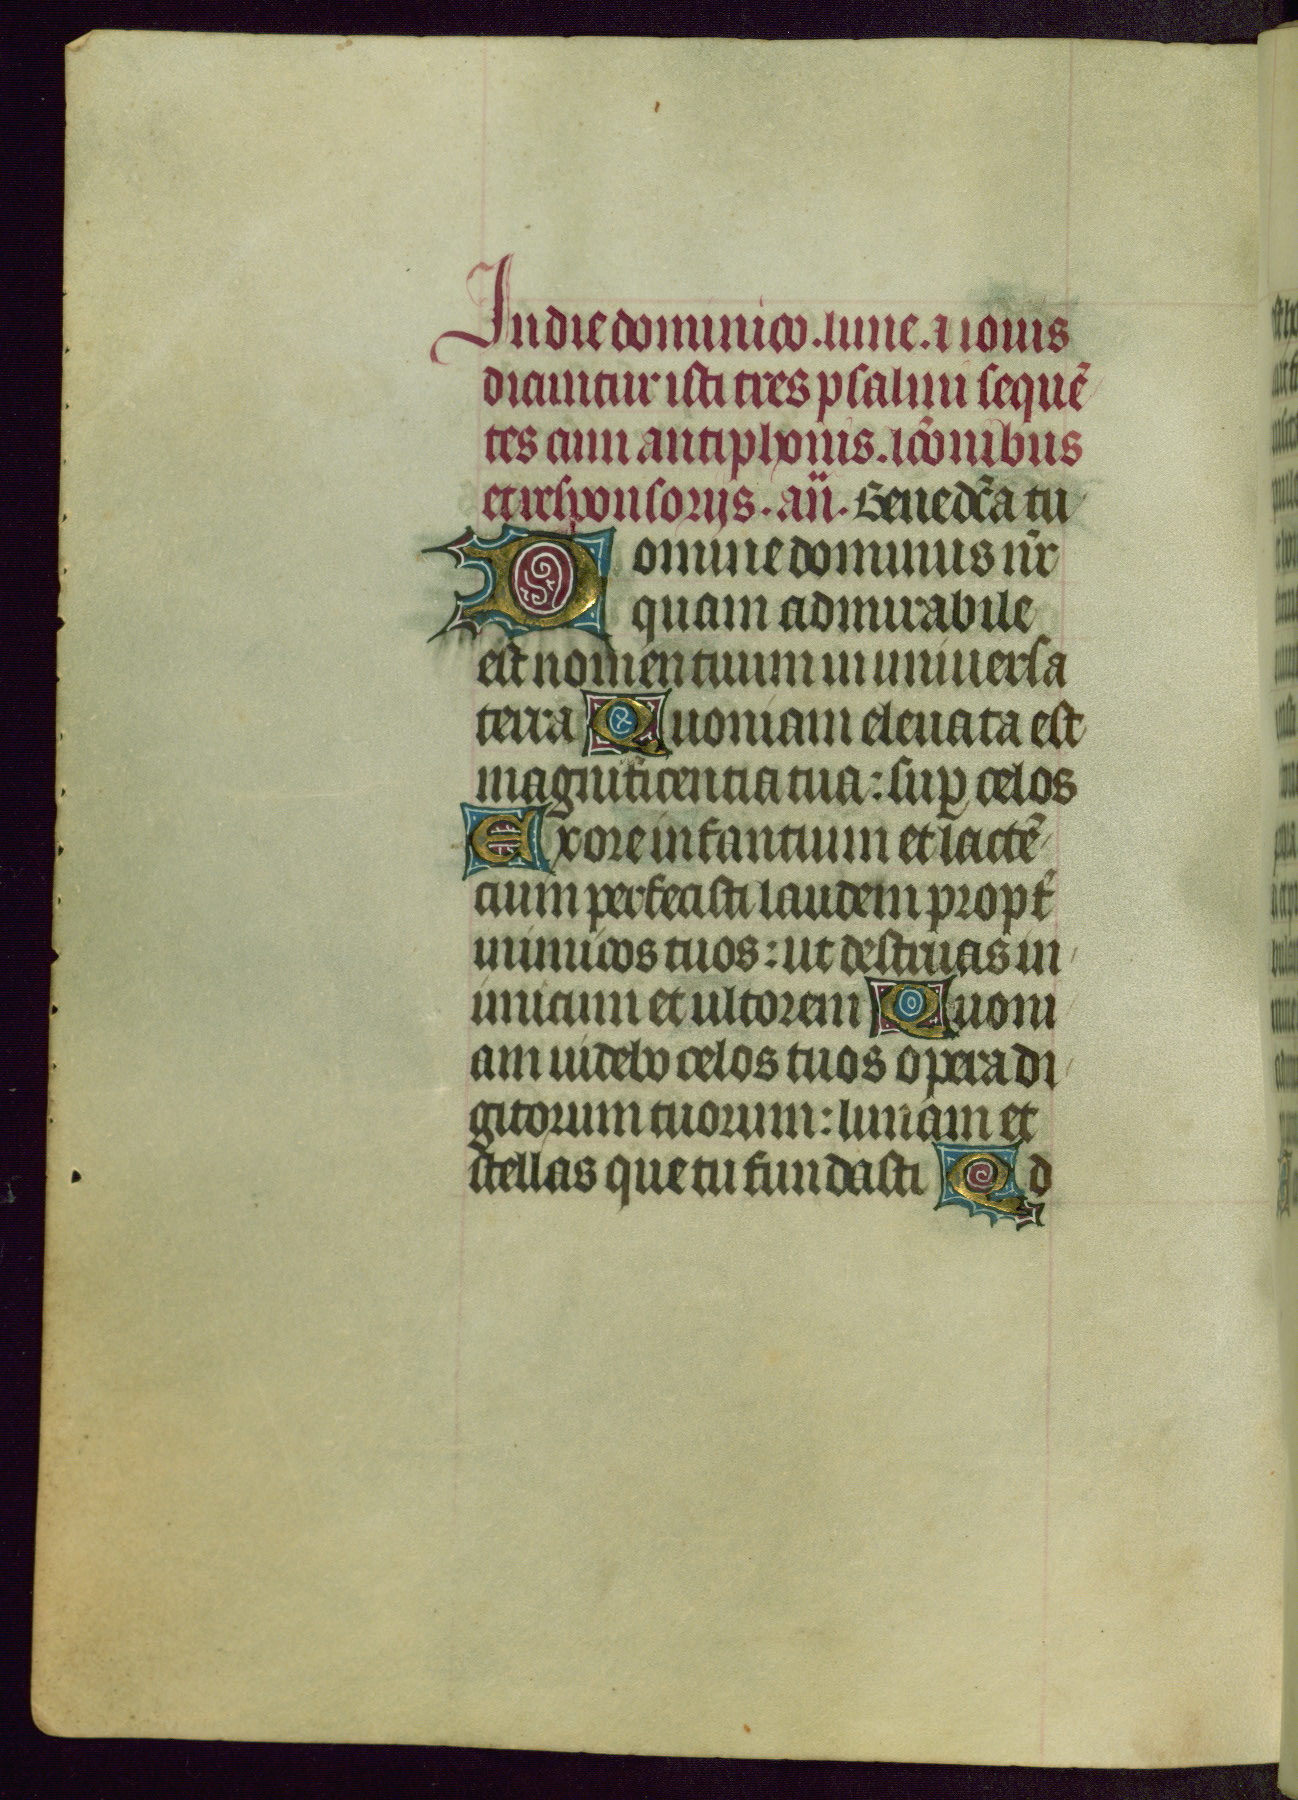 In die dominico . lune . i iouis
dicuntur isti tres psalmi sequē
tes cum antiphonis . lcōnibus
et responsorijs . añ. Benedc̄a tu
Domine dominus nr̄
quam admirabile
est nomen tuum in uniuersa
terra Quoniam eleuata est
magnificentia tua : suꝑ celos
Ex ore infantium et lactē
cium perfecisti laudem propt̄
inimicos tuos : ut destruas in
imicum et ultorem Quoni
am uidebo celos tuos opera di
gitorum tuorum : lunam et
stellas que tu fundasti Qd